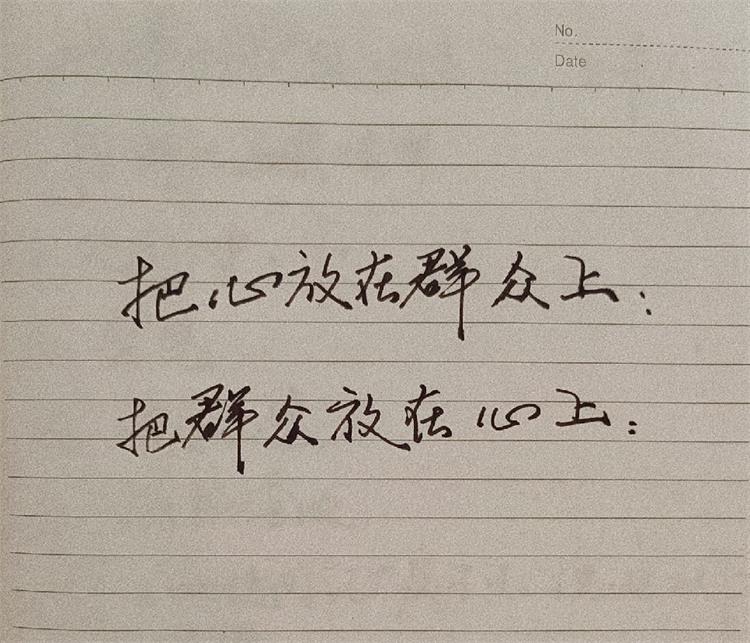 No.
Date
把心放在群众上：
把群众放在心上：